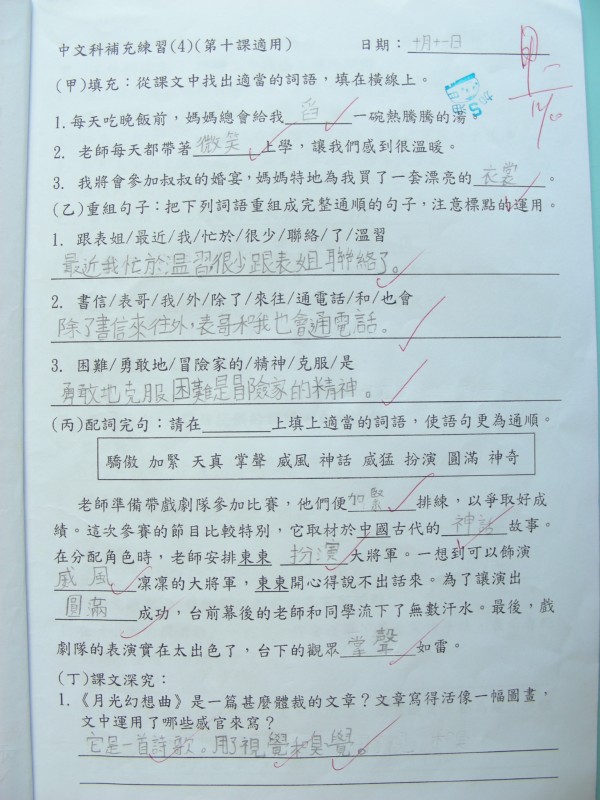 中文科補充練習(4)(第十課適用) 日期：十月十一日
(甲)填充：從課文中找出適當的詞語，填在橫線上。
1.每天吃晚飯前，媽媽總會給我 舀 一碗熱騰騰的湯
2. 老師每天都帶著 微笑 上學，讓我們感到很溫暖。
3. 我將會參加叔叔的婚宴，媽媽特地為我買了一套漂亮的 衣裳 。
(乙)重組句子：把下列詞語重組成完整通順的句子，注意標點的運用。
1. 跟表姐/最近/我/忙於/很少/聯絡/了/溫習
最近我忙於温習很少跟表姐聯絡了。
2. 書信/表哥/我/外/除了/來往/通電話/和/也會
除了書信來往外，表哥和我也會通電話。
3. 困難/勇敢地/冒險家的/精神/克服/是
勇敢地克服困難是冒險家的精神。
(丙)配詞完句：請在______上填上適當的詞語，使語句更為通順。
驕傲 加緊 天真 掌聲 威風 神話 威猛 扮演 圓滿 神奇
老師準備帶戲劇隊參加比賽，他們便 加緊 排練，以爭取好成
績。這次參賽的節目比較特別，它取材於中國古代的 神話 故事。
在分配角色時，老師安排東東 扮演 大將軍。一想到可以飾演
威風 凜凜的大將軍，東東開心得說不出話來。為了讓演出
圓滿 成功，台前幕後的老師和同學流下了無數汗水。最後，戲
劇隊的表演實在太出色了，台下的觀眾 掌聲 如雷。
(丁)課文深究：
1. 《月光幻想曲》是一篇甚麼體裁的文章？文章寫得活像一幅圖畫，
文中運用了哪些感官來寫？
它是一首詩歌。用了視覺和臭覺。